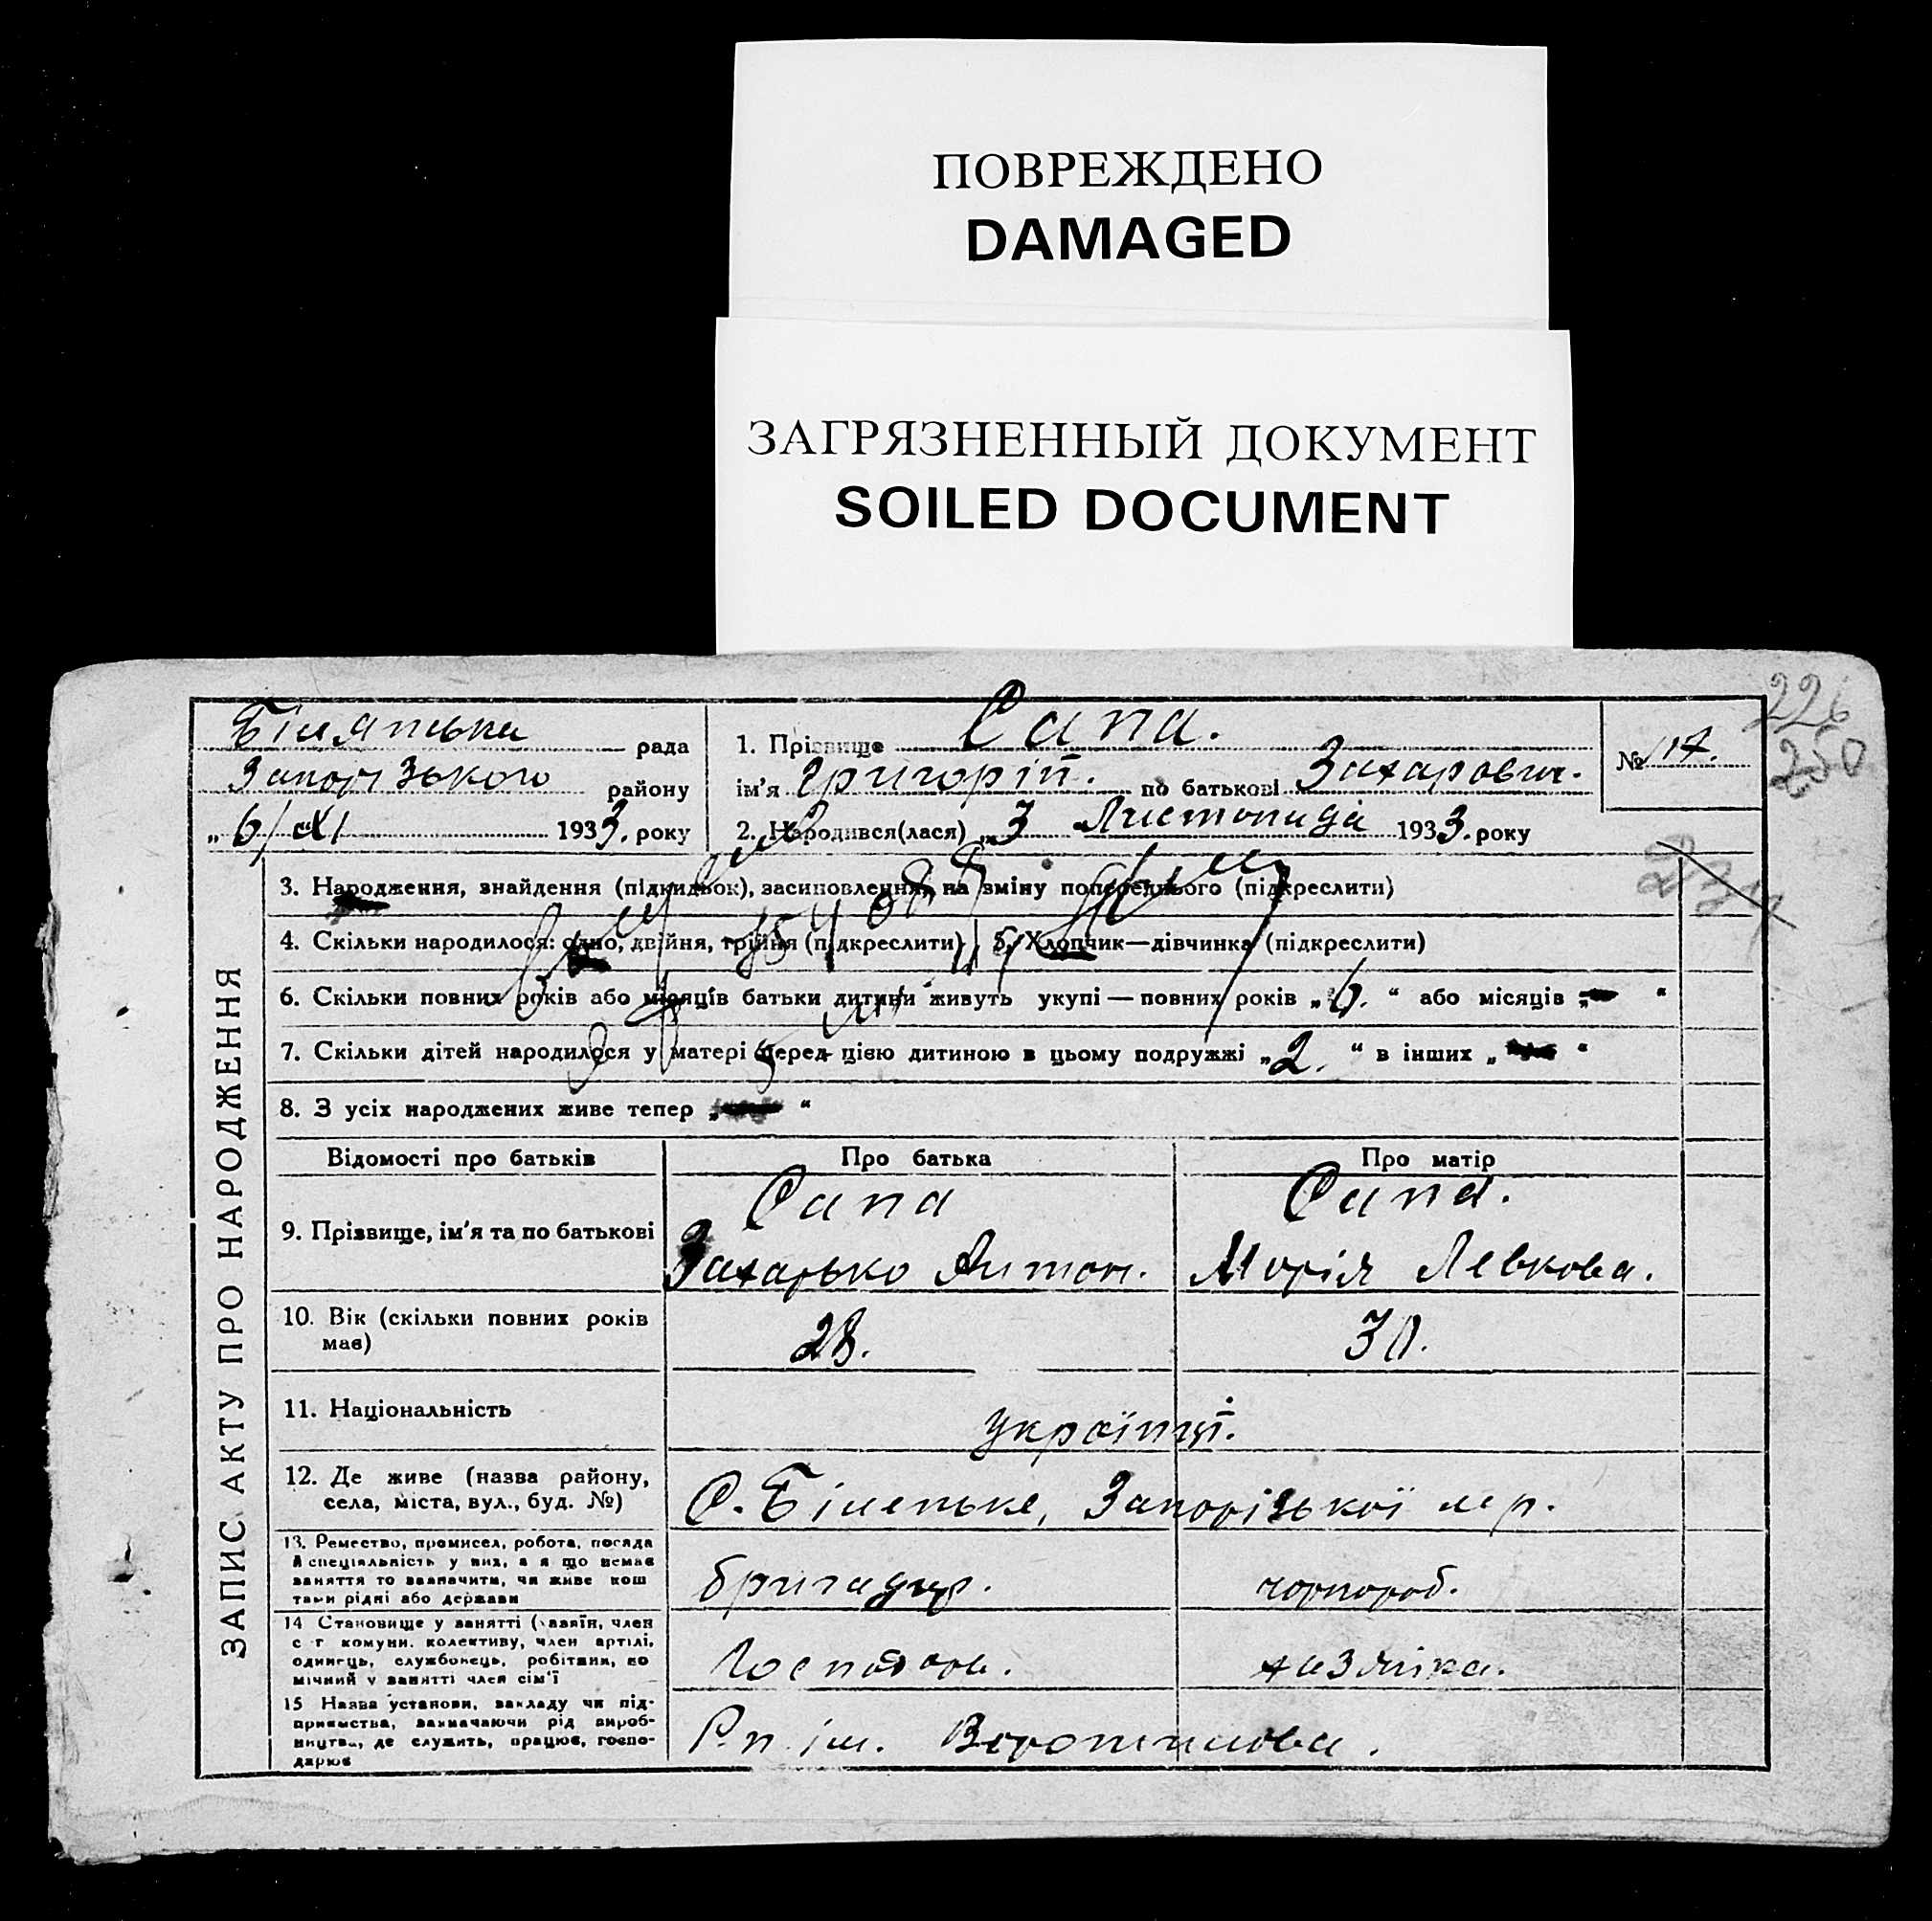 ПОВРЕЖДЕНО
DAMAGED
ЗАГРЯЗНЕННЫЙ ДОКУМЕНТ
SOILED DOCUMENT
226
250
234
ЗАПИС АКТУ ПРО НАРОДЖЕННЯ
рада
Запорізького району
„6/ХІ 1933. року
1. Прізвище Сапа.
ім'я Григорій. по батькові Захарович.
№ 117.
2. Народився(лася) „3 Листопада 1933. року
3. Народження, знайдення (підкидьок), засиновлення, на зміну попереднього (підкреслити)
4. Скільки народилося: одно, двійня, трійня (підкреслити) 5. Хлопчик—дівчинка (підкреслити)
6. Скільки повних років або місяців батьки дитини живуть укупі — повних років „6.“ або місяців „ “
7. Скільки дітей народилося у матері перед цією дитиною в цьому подружжі „2.“ в інших „ “
8. З усіх народжених живе тепер „ “
Відомості про батьків Про батька Про матір
9. Прізвище, ім'я та по батькові
Сапа Сапа.
Захарько Антон. Марія Левкова.
10. Вік (скільки повних років має) 28. 30.
11. Національність українці.
12. Де живе (назва району, села, міста, вул., буд. №) С. Біленьке, Запорізької м р.
13. Ремество, промисел, робота, посяда й спеціяльність у них, а я що немає заняття то зазначити, чи живе кош тами рідні або держави бригадир. чорнороб.
14 Становище у занятті (хазяїн, член с г комуни. колективу, член артілі, одинець, службовець, робітник, по мічний у занятті член сім'ї Господар. хазяйка.
15 Назва установи, закладу чи під- приємства, зазначаючи рід вироб- ництва, де служить, працює, госпо- дарює Р.п. ім. Ворошилова.